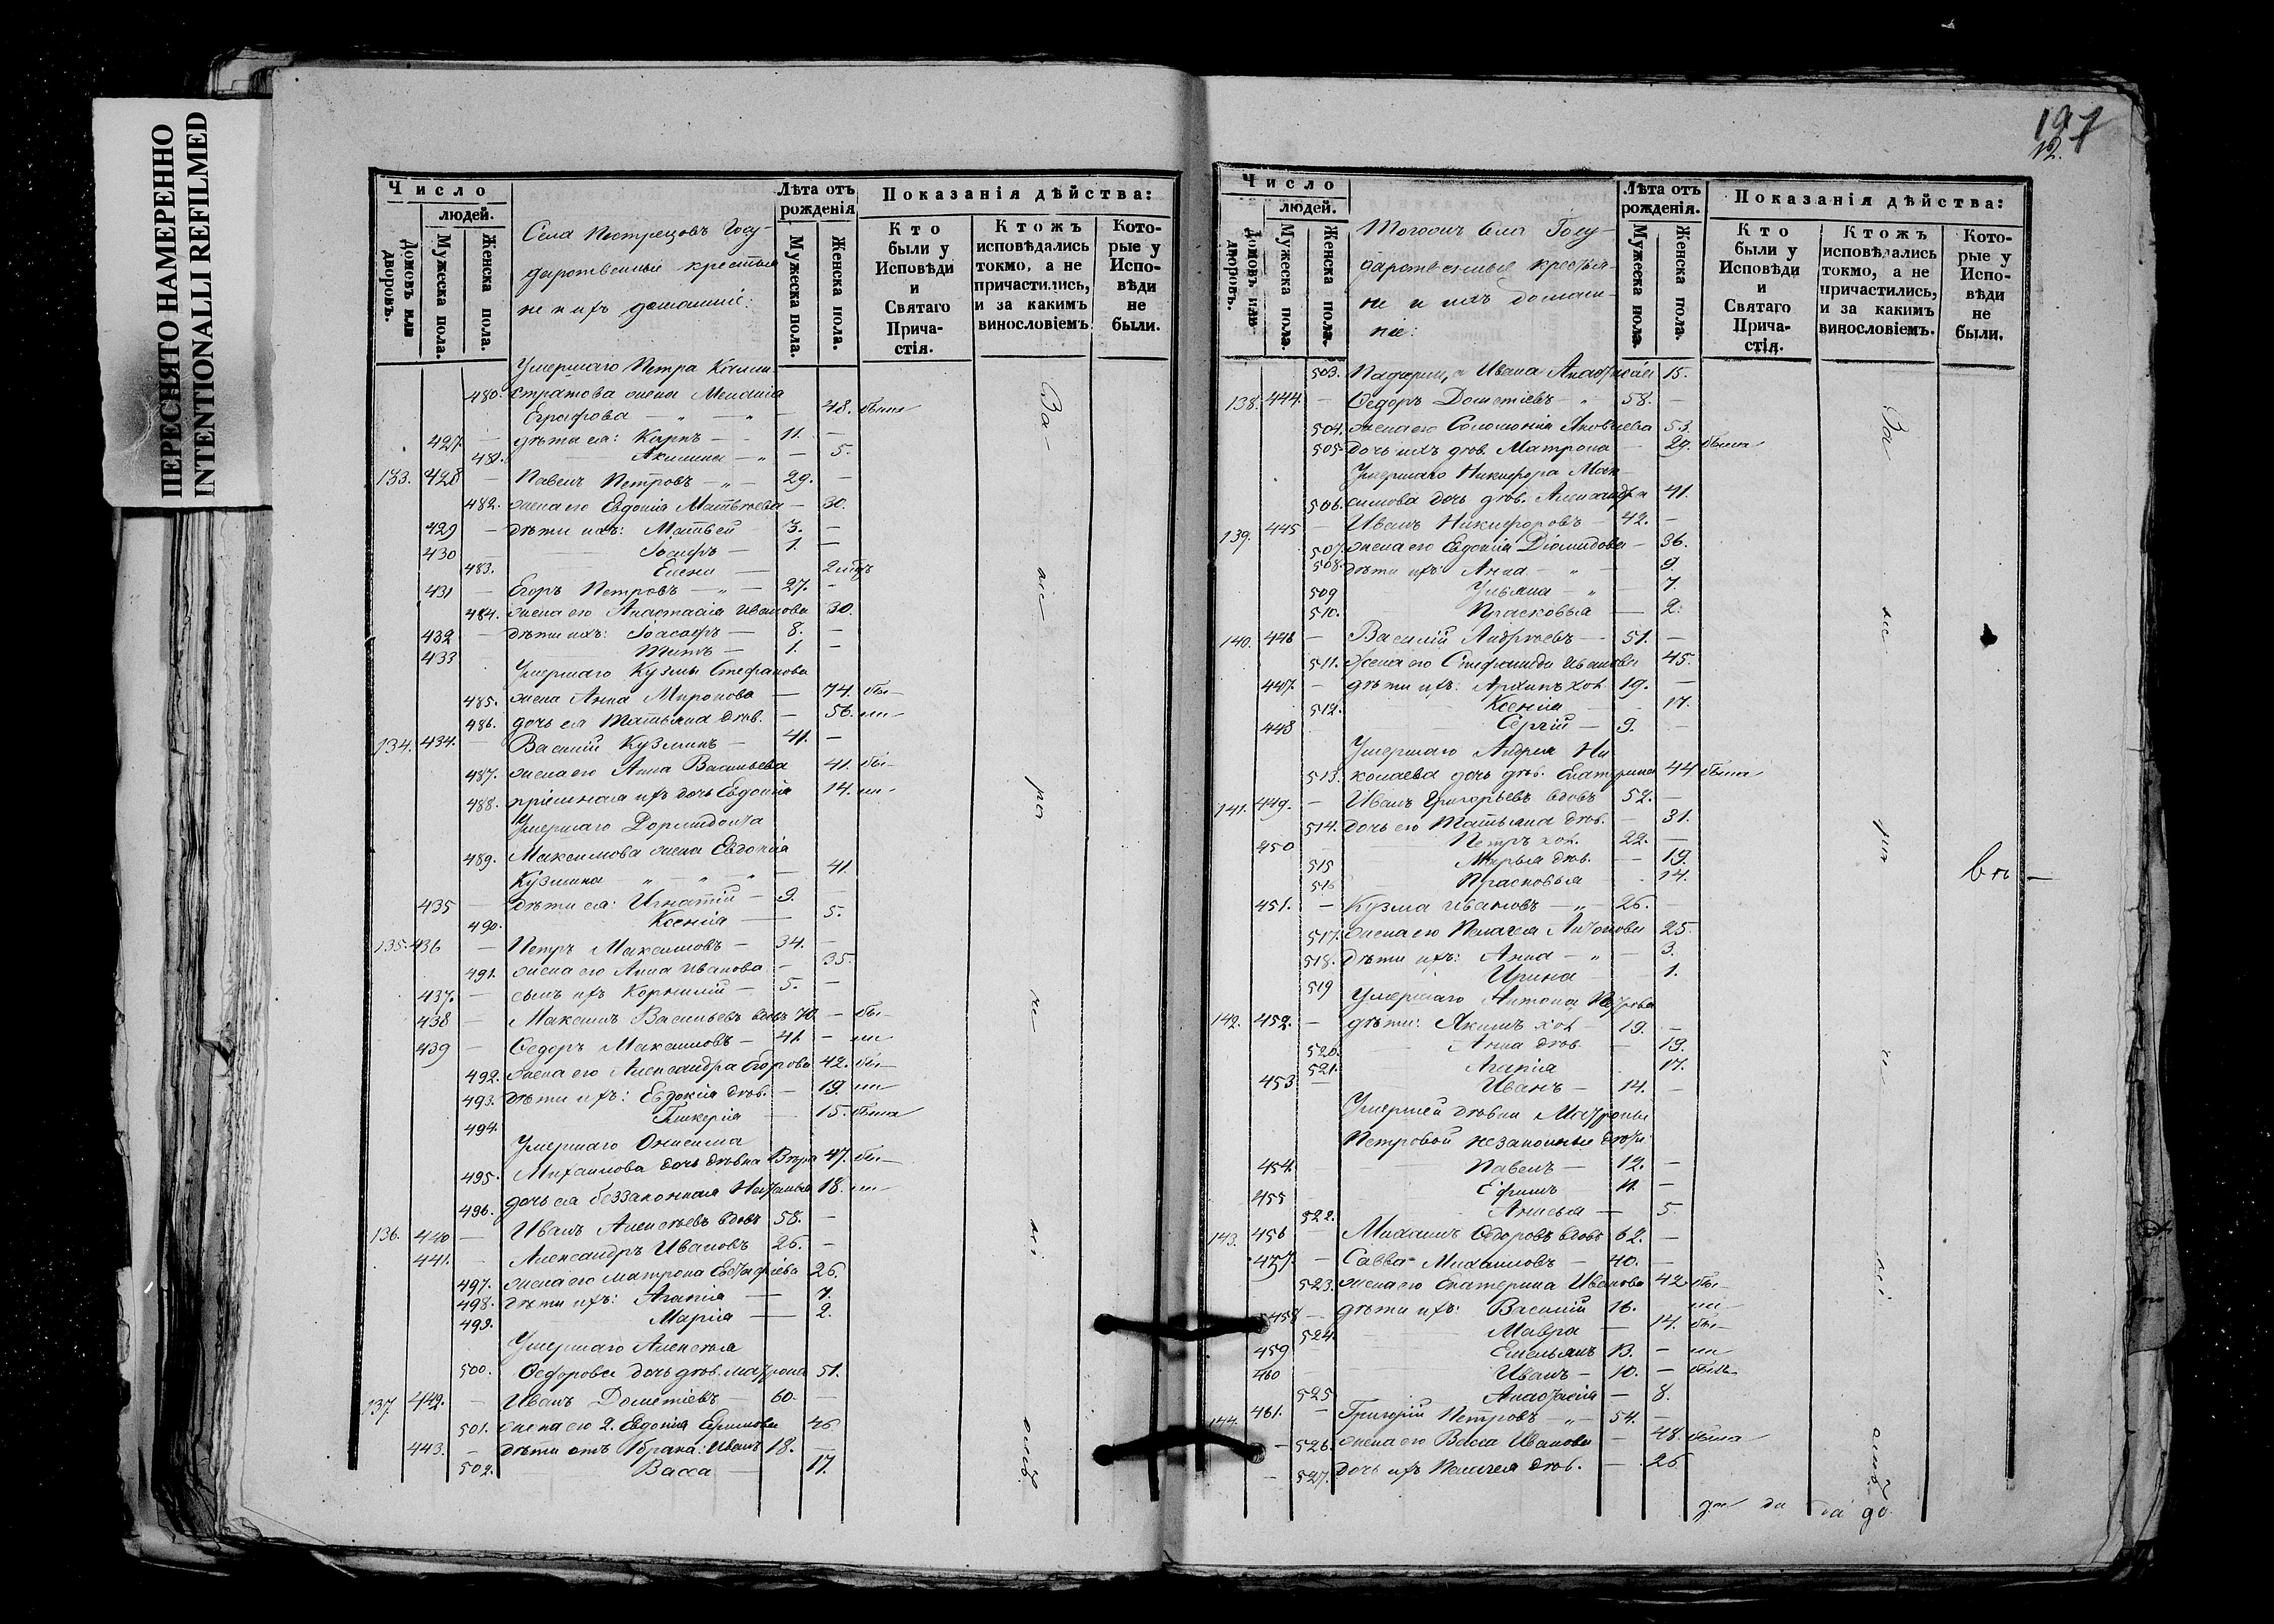 ПЕРЕСНЯТО НАМЕРЕННО
INTENTIONALLI REFILMED
Число
людей.
Домовъ или дворовъ.
Мужеска пола.
Женска пола.
Села Пестрецовъ Госу-
дарственные крестья
не и ихъ домашніе:
Лѣта отъ рожденія
Мужеска пола.
Женска пола.
Показанія дѣйства:
Кто были у Исповѣди и Святаго Прича-стія.
Ктожъ исповѣдались токмо, а не причастились, и за какимъ винословіемъ
Кото-рые у Испо-вѣди не были.
Умершаго Петра
480. жена Меланія
48. была
427. — дѣти ея: Карпъ — 11. —
481. Акилина — 5.
133. 428 — Павелъ Петровъ — 29. —
482. жена его Евдокія Матвѣева — 30.
429 — дѣти ихъ: Матвей 3. —
430 Іосифъ — 1. —
483. Елена — 2
431 — Егоръ Петровъ — 27. —
484. жена его Анастасія Иванова 30.
432 — дѣти ихъ: Іоасафъ — 8. —
433 Титъ — 1. —
Умершаго Кузмы Стефанова
485. жена Анна Миронова — 74. бы-
486. дочь ея Татьяна дѣв. — 56. ли
134. 434. — Василій Кузминъ — 41. —
487. жена его Анна Васильева 41. бы-
488. пріемная ихъ дочь Евдокія 14. ли
Умершаго Дормидонта
489. Максимова жена Евдокія
Кузмина — 41.
435 — дѣти ея: Игнатій — 9. —
490. Ксенія — 5.
135. 436 — Петръ Максимовъ — 34. —
491. жена его Анна Иванова — 35.
437. — сынъ ихъ Корнилій — 5. —
438 — Максимъ Васильевъ вдовъ 70 — бы-
439 — Ѳедоръ Максимовъ — 41. — ли
492. жена его Александра Егорова 42. бы-
493. дѣти ихъ: Евдокія дѣв. — 19. ли
494. Гликерія — 15. была
Умершаго Онисима
495. Михайлова дочь дѣвка Вѣра 47. бы-
496. дочь ея беззаконная Наталья 18. ли
136. 440 — Иванъ Алексѣевъ вдовъ 58. —
441. — Александръ Ивановъ 26. —
497. жена его Матрона Евстафіева 26.
498. дѣти ихъ: Агапія — 7.
499. Марія — 2.
Умершаго Алексѣя
500. Ѳедорова дочь дѣв. Матрона 51.
137. 442. — Иванъ Дометіевъ — 60. —
501. жена его 2. Евдокія Ефимова 46.
443. — дѣти отъ 1 брака: Иванъ 18. —
502. Васса — 17.
За
ра
197
12.
Число
людей.
Домовъ или дворовъ.
Мужеска пола.
Женска пола.
Тогожъ Села Госу-
дарственные крестья-
не и ихъ домаш-
ніе:
Лѣта отъ рожденія.
Мужеска пола.
Женска пола.
Показанія дѣйства:
Кто были у Исповѣди и Святаго Прича-стія.
Ктожъ исповѣдались токмо, а не причастились, и за какимъ винословіемъ.
Кото-рые у Испо-вѣди не были.
503. Падчерица Ивана Анастасія 15.
138. 444. — Ѳедоръ Дометіевъ — 58. —
504. жена его Соломонія Яковлева 53.
505. дочь ихъ дѣв. Матрона — 29. была
Умершаго Никифора Мак-
506. симова дочь дѣв. Александра 41.
139. 445 — Иванъ Никифоровъ — 42. —
507. жена его Евдокія Діомидова — 36.
508. дѣти ихъ: Анна — 9.
509 Ульяна — 7.
510. Прасковья — 2.
140. 446 — Василій Андреевъ — 51. —
511. жена его Стефанида Иванова 45.
447. — дѣти ихъ: Архипъ хол. 19. —
512. Ксенія — 17.
448 Сергій — 9. —
Умершаго Андрея Ни
513. колаева дочь дѣв. Екатерина 44 была
141. 449. — Иванъ Григорьевъ вдовъ 52. —
514. дочь его Татьяна дѣв. — 31.
450 — Петръ хол. 22. —
515 Марья дѣв. — 19.
516 Прасковья 14.
451. — Кузма Ивановъ — 26. —
517. жена его Пелагея Антонова 25.
518. дѣти ихъ: Анна — 3.
519 Ирина 1.
Умершаго Антона Петрова
142. 452. — дѣти: Акимъ хол. 19. —
520. Анна дѣв. — 19.
521. Агапія 17.
453 — Иванъ — 14. —
Умершей дѣвки Матроны
Петровой незаконные дѣти:
454. Павелъ — 12. —
455 Ефимъ 11. —
522. Анисья — 5.
143. 456 — Михаилъ Ѳедоровъ вдовъ 62. —
457. — Савва Михаиловъ — 40. —
523. жена его Екатерина Иванова 42 бы-
458 — дѣти ихъ: Василій 16. ли
524. Мавра — 14. бы-
459 Емельянъ 13. — ли
460 Иванъ — 10. — былъ
525. Анастасія — 8.
144. 461. — Григорій Петровъ — 54. —
526. жена его Васса Иванова — 48. была
527. дочь ихъ Пелагея дѣв. — 26
За